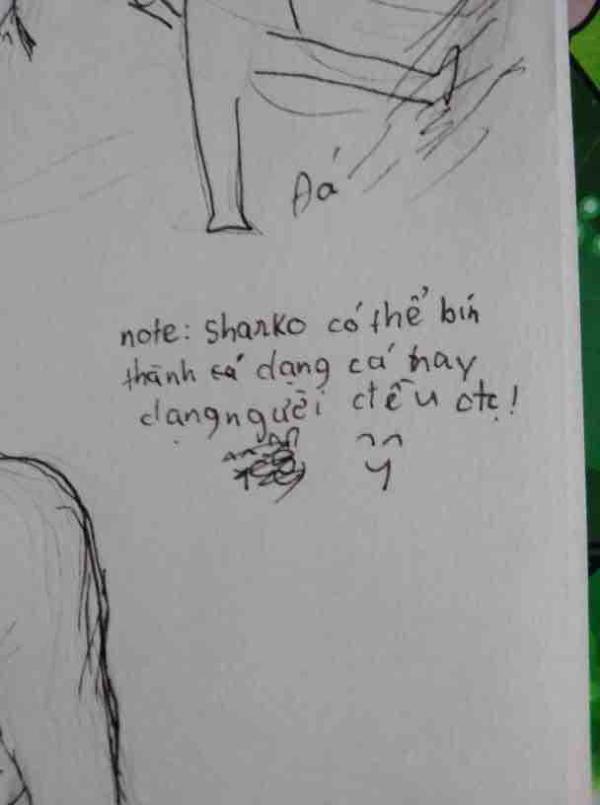 Đá
note: sharko có thể bín
thành cá dạng cá hay
dạng người đều đc!